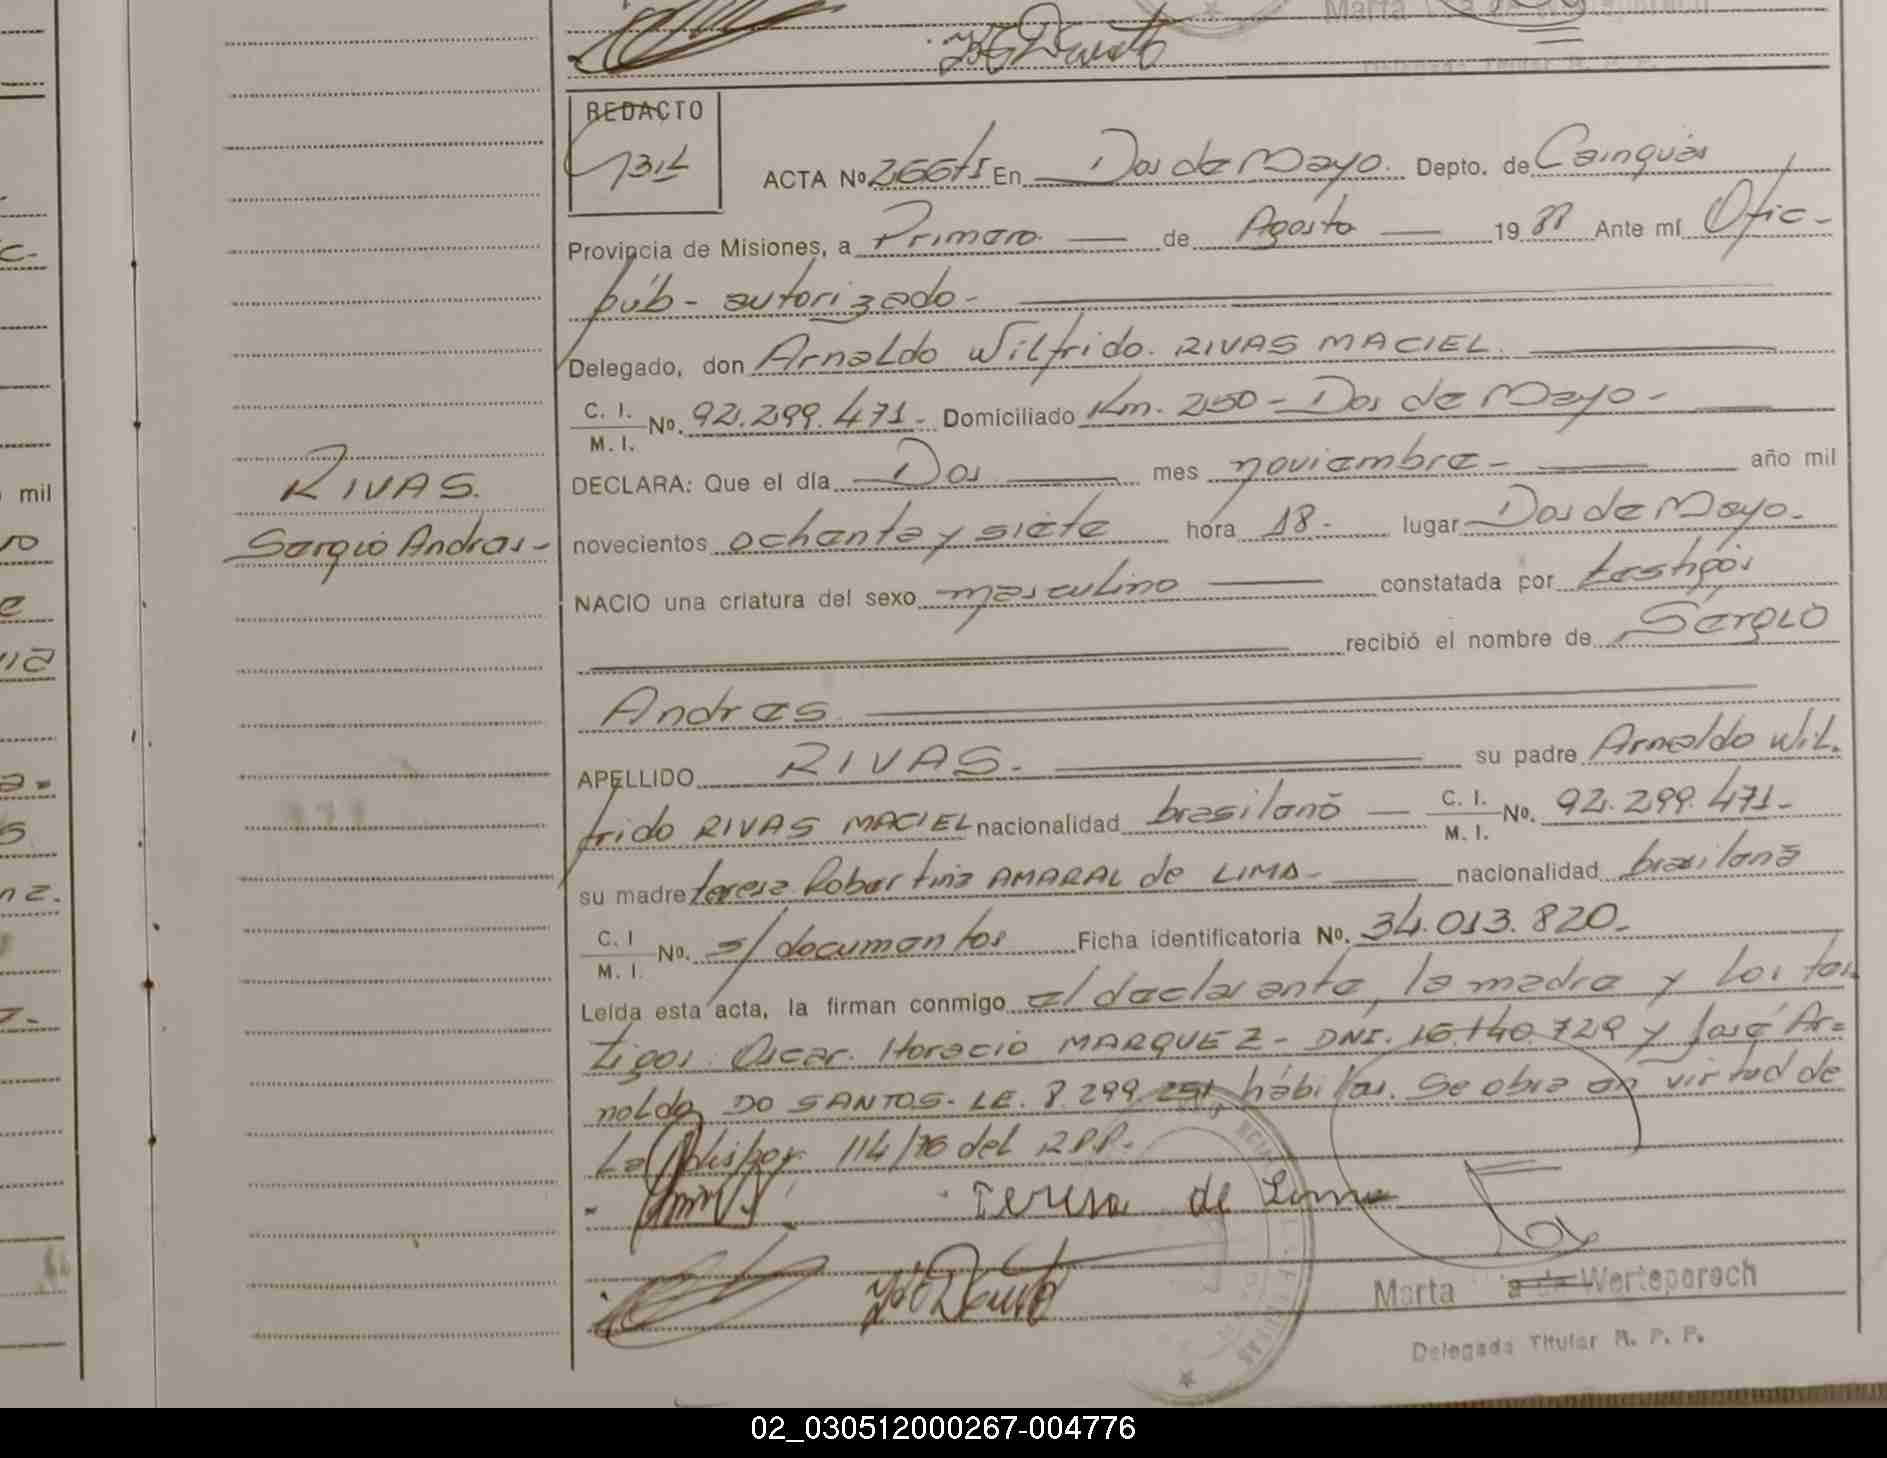 Delegada Titular R. P. P.
REDACTO
ACTA Nº 266 ts En Dos de Mayo. Depto. de Cainguás
Provincia de Misiones, a Primero de Agosto 1988 Ante mí Ofic-
púb- autorizado-
Delegado, don Arnaldo Wilfrido. RIVAS MACIEL.
C. I.
M. I. Nº. 92.299.471- Domiciliado Km. 250 - Dos de Mayo -
DECLARA: Que el día Dos mes noviembre- año mil
RIVAS.
Sergio Andres-
novecientos ochenta y siete hora 18- lugar Dos de Mayo-
NACIO una criatura del sexo masculino constatada por testigos
recibió el nombre de Sergio
Andres
APELLIDO RIVAS. su padre Arnaldo Wil.
frido RIVAS MACIEL nacionalidad brasilano C. I. M. I. Nº. 92.299.471-
su madre teresa Robertina AMARAL de LIMA- nacionalidad brasilana
C. I M. I. Nº. s/documentos Ficha identificatoria Nº. 34.013.820-
Leída esta acta, la firman conmigo el declarante, la madre y los tes
tigos: Oscar Horacio MARQUEZ- DNI. 16.140.729 y José Ar=
noldo DO SANTOS- LE. 8.299.251 hábiles. Se obra en virtud de
La Dispos. 114/76 del RPP.-
Teresa de Lima
Marta Werteporoch
Delegada Titular R. P. P.
mil
02_030512000267-004776